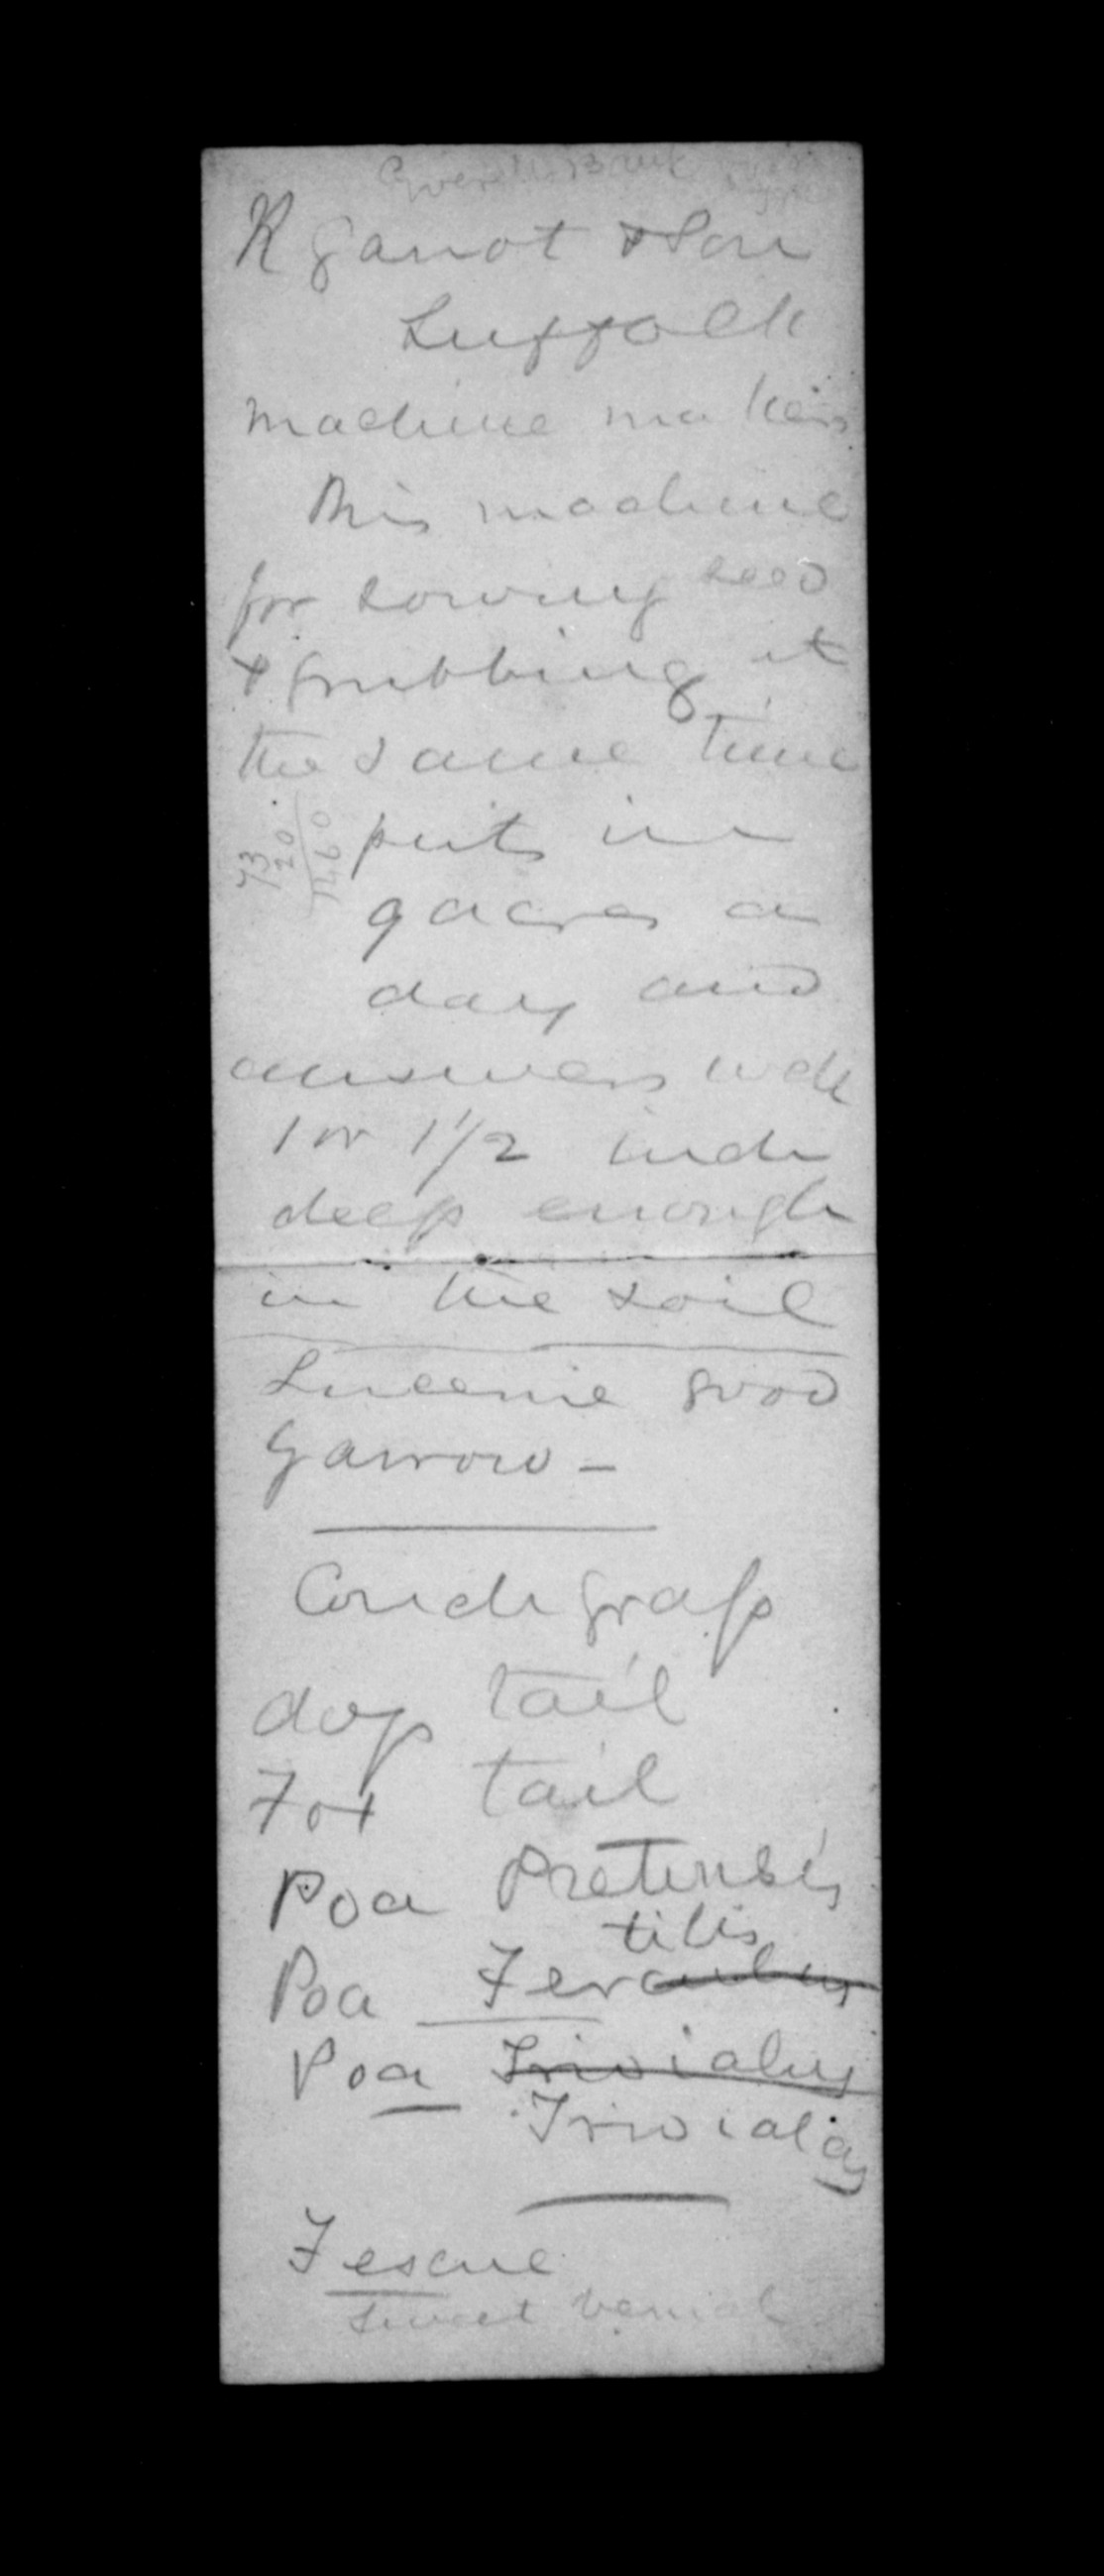 R Garrot & Son
Suffolk
machine makers
This machine
for sowing seed
& grubbing it
the same time
puts in
9 acres a
day and
answers well
1 or 1 1/2 inch
deep enough
in the soil
Lucerne good
Yarrow -
Couch Grass
dog tail
Fox tail
Poa Pretensis
tilis
Poa Fer
Poa Trivialus
Trivialas
Fescue
Sweet
73
20
1460